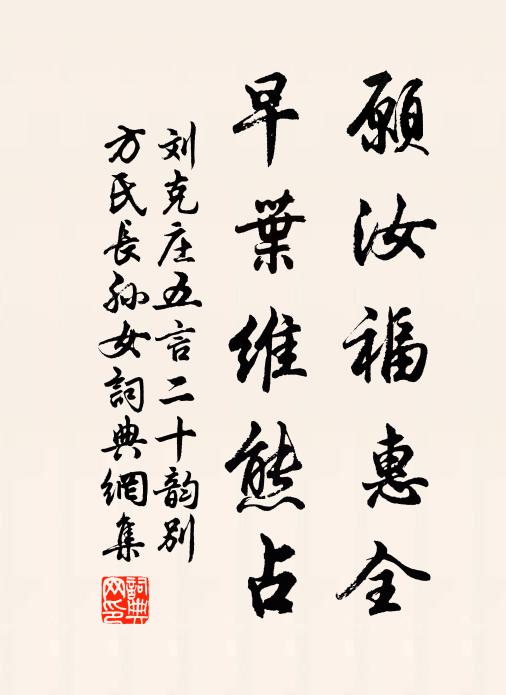 願汝福惠全
早葉維熊占
刘克庄五言二十韵别
方氏長孙女詞典網集
詞典网印